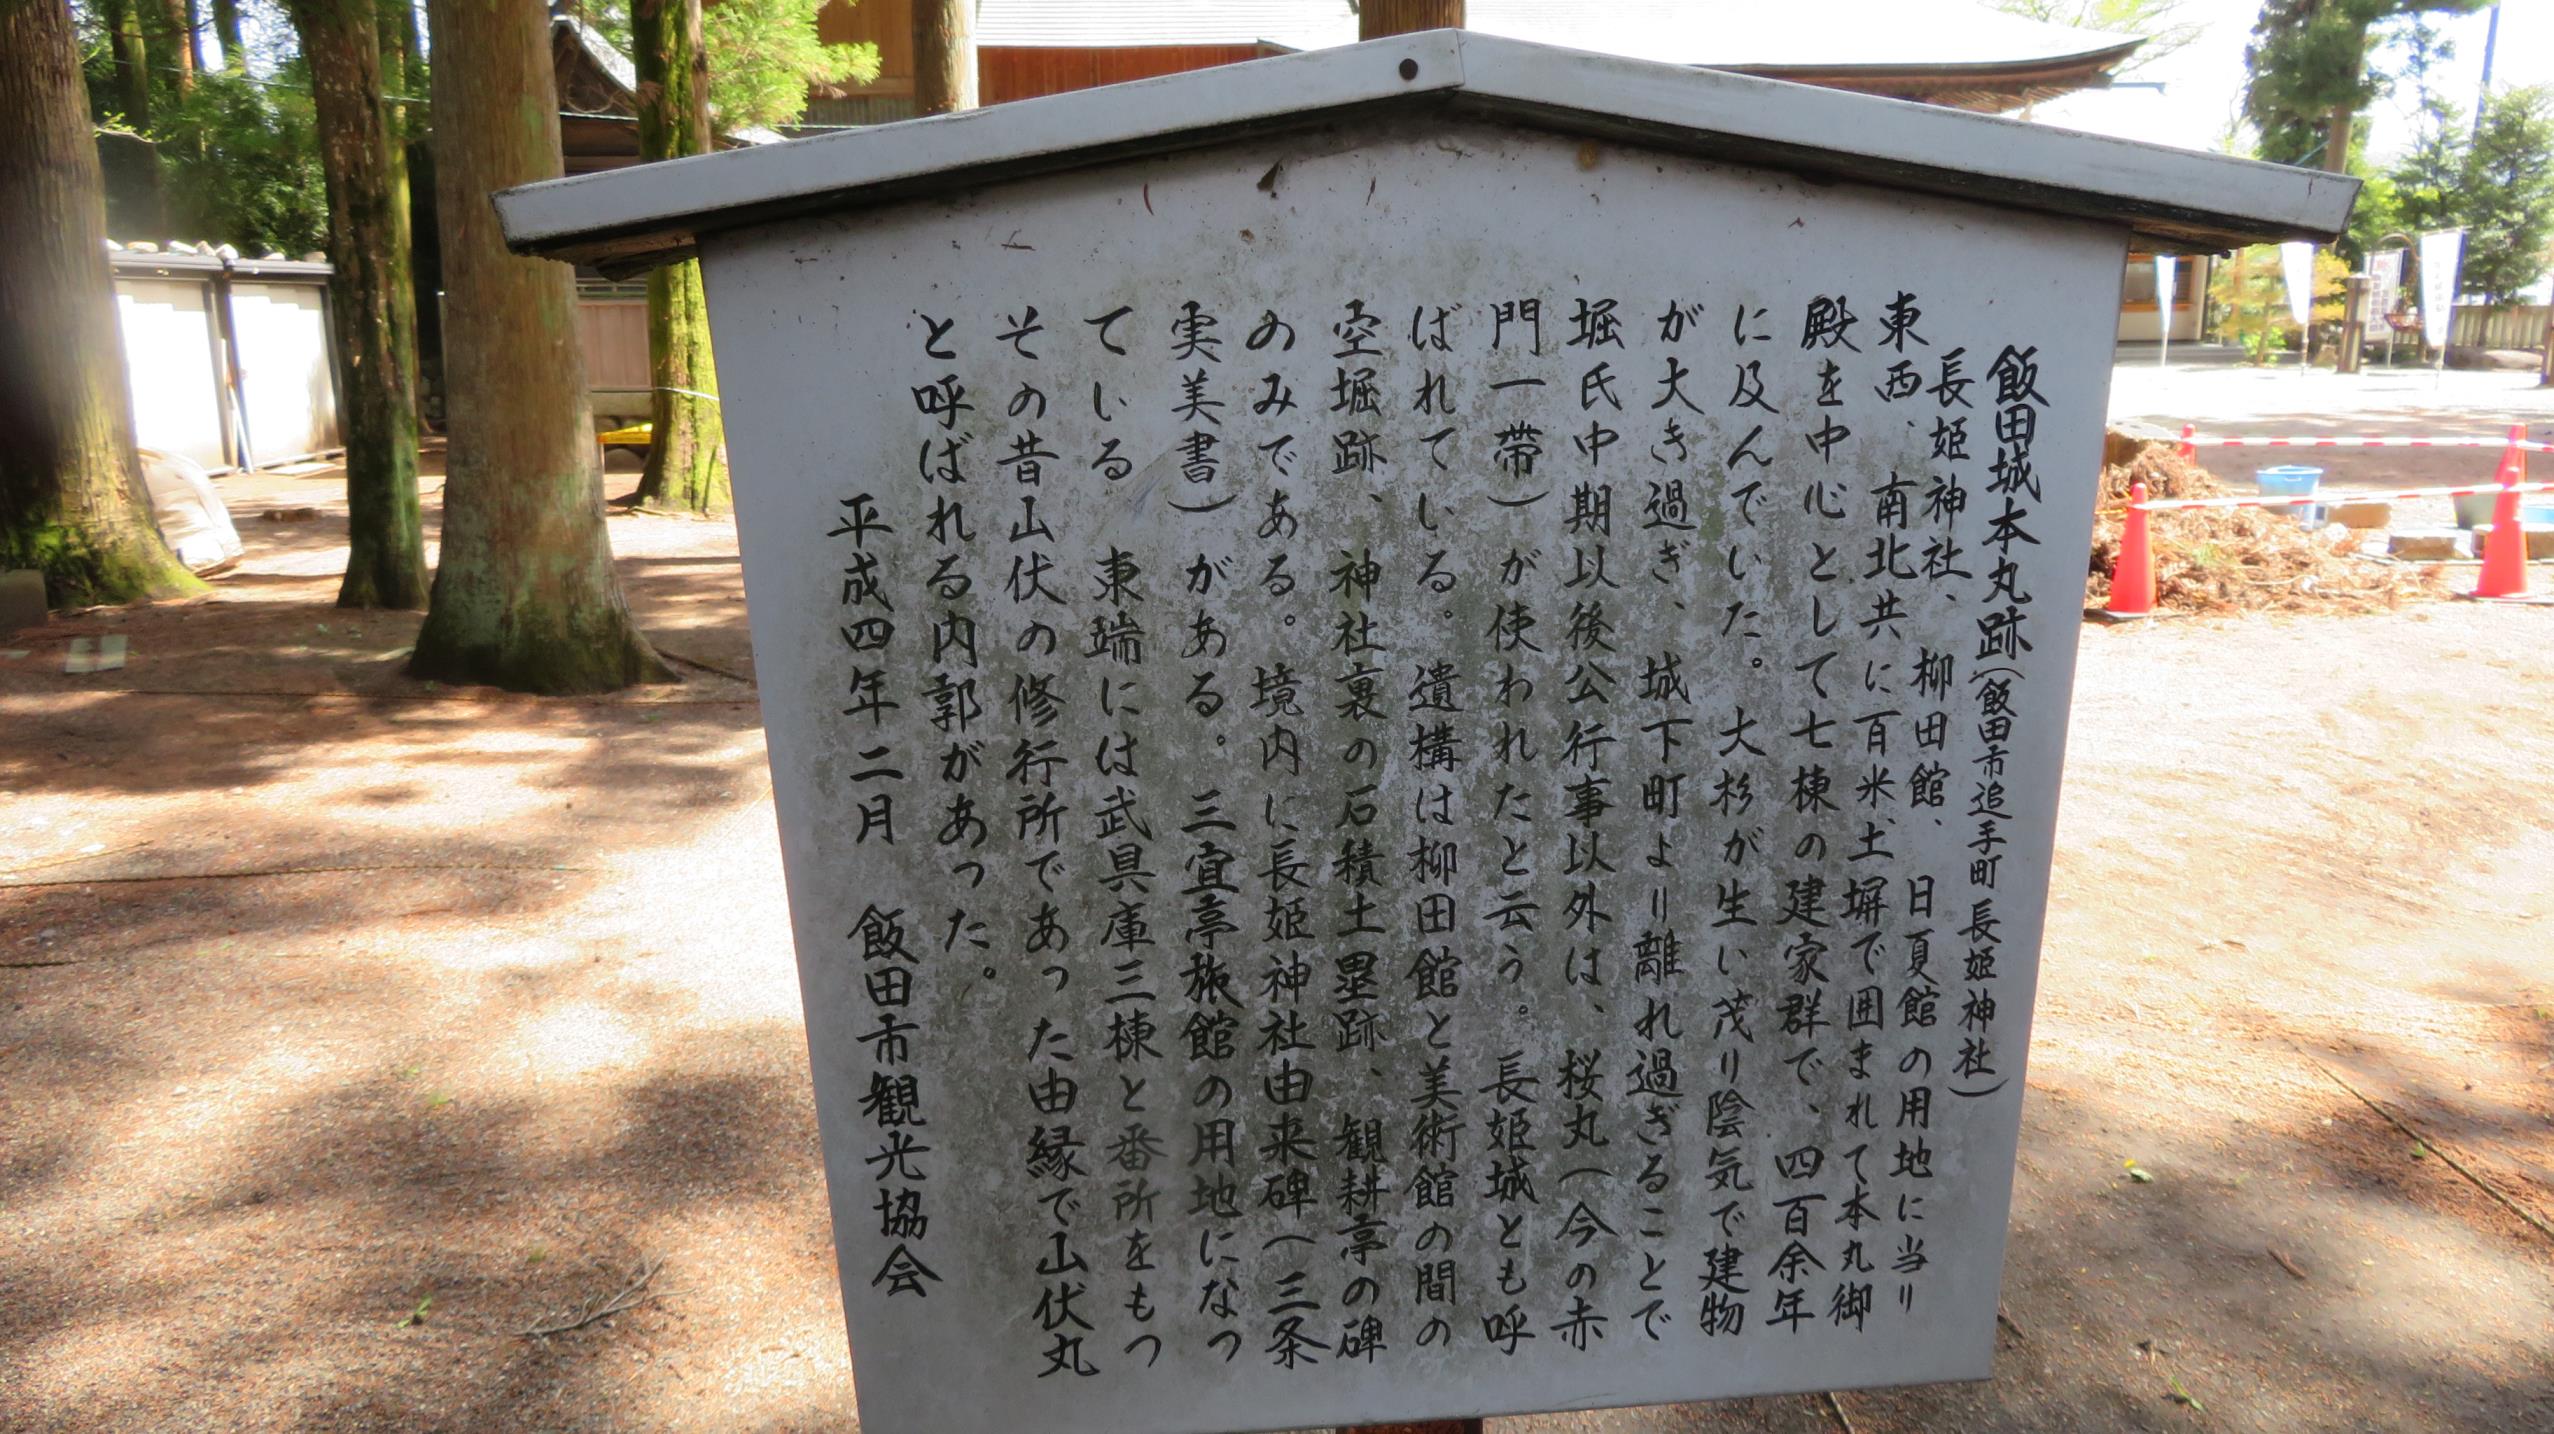 飯田城本丸跡(飯田市追手町 長姫神社)
長姫神社、柳田館、日夏館の用地に当り
東西、南北共に百米、土塀で囲まれて本丸御
殿を中心として七棟の建家群で、四百余年
に及んでいた。大杉が生い茂り陰気で建物
が大き過ぎ、城下町より離れ過ぎることで
堀氏中期以後公行事以外は、桜丸(今の赤
門一帯)が使われたと云う。長姫城とも呼
ばれている。遺構は柳田館と美術館の間の
空堀跡、神社裏の石積土塁跡、観耕亭の碑
のみである。境内に長姫神社由来碑(三条
実美書)がある。三宜亭旅館の用地になっ
ている 東端には武具庫三棟と番所をもつ
その昔山伏の修行所であった由縁で山伏丸
と呼ばれる内郭があった。
平成四年二月 飯田市観光協会